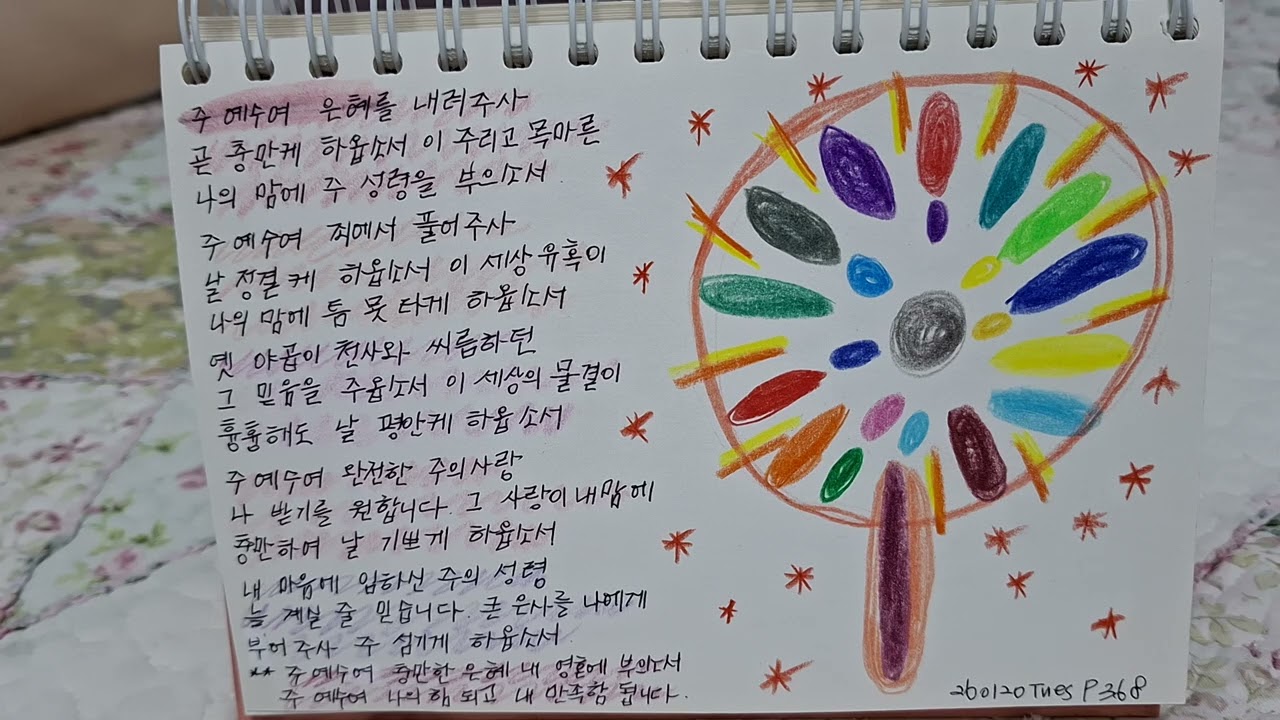 주 예수여 은혜를 내려주사
곧 충만케 하옵소서 이 주리고 목마른
나의 맘에 주 성령을 부으소서
주 예수여 죄에서 풀어주사
날 정결케 하옵소서 이 세상 유혹이
나의 맘에 틈 못 타게 하옵소서
옛 야곱이 천사와 씨름하던
그 믿음을 주옵소서 이 세상의 물결이
흉흉해도 날 평안케 하옵소서
주 예수여 완전한 주의 사랑
나 받기를 원합니다. 그 사랑이 내 맘에
충만하여 날 기쁘게 하옵소서
내 마음에 임하신 주의 성령
늘 계실 줄 믿습니다. 큰 은사를 나에게
부어주사 주 섬기게 하옵소서.
** 주 예수여 충만한 은혜 내 영혼에 부으소서
주 예수여 나의 힘 되고 내 만족함 됩니다.
260120 Tues P368